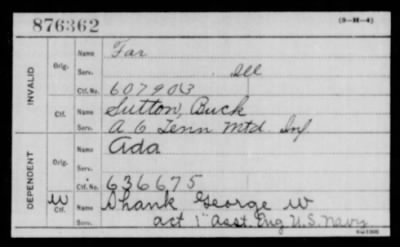 876362
(3-H-4)
INVALID
Orig.
Name Far
Serv. Ill
Ctf. No. 607903
Ctf.
Name Sutton, Buck
Serv. A 6 Tenn Mtd Inf
DEPENDENT
Orig.
Name Ada
Serv.
Ctf. No. 636675
W
Ctf.
Name Shank George W
Serv. act 1" Asst. Eng U.S. Navy